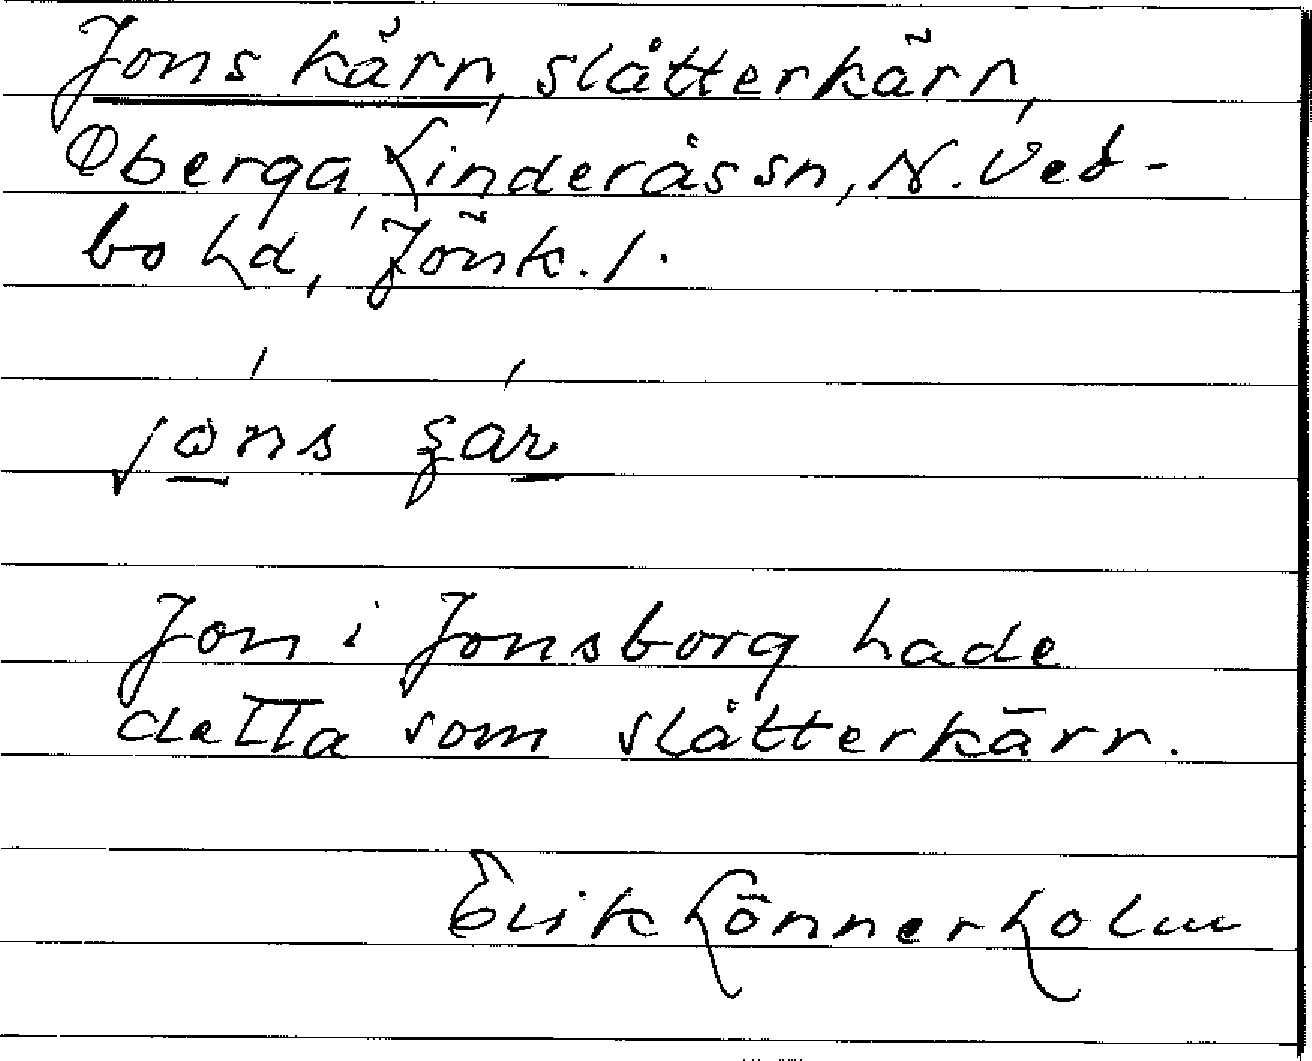 Jons kärr, slåtterkärr,
Öberga, Linderås sn, N. Ved-
bo hd, Jönk. l.
jons
Jon i Jonsborg hade
detta som slåtterkärr.
Erik Lönnerholm